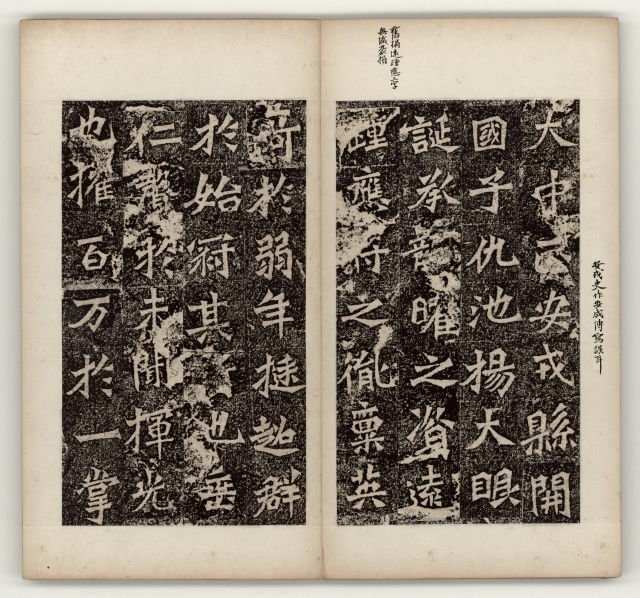 安戎史作安成傳寫誤耳
舊搨遠踵應字
無
大中正安戎縣開
國子仇池楊大眼
誕承龍曜之資遠
踵應符之胤稟英
奇於弱年挺超群
於始冠其也垂
仁聲於未聞揮光
也摧百万於一掌